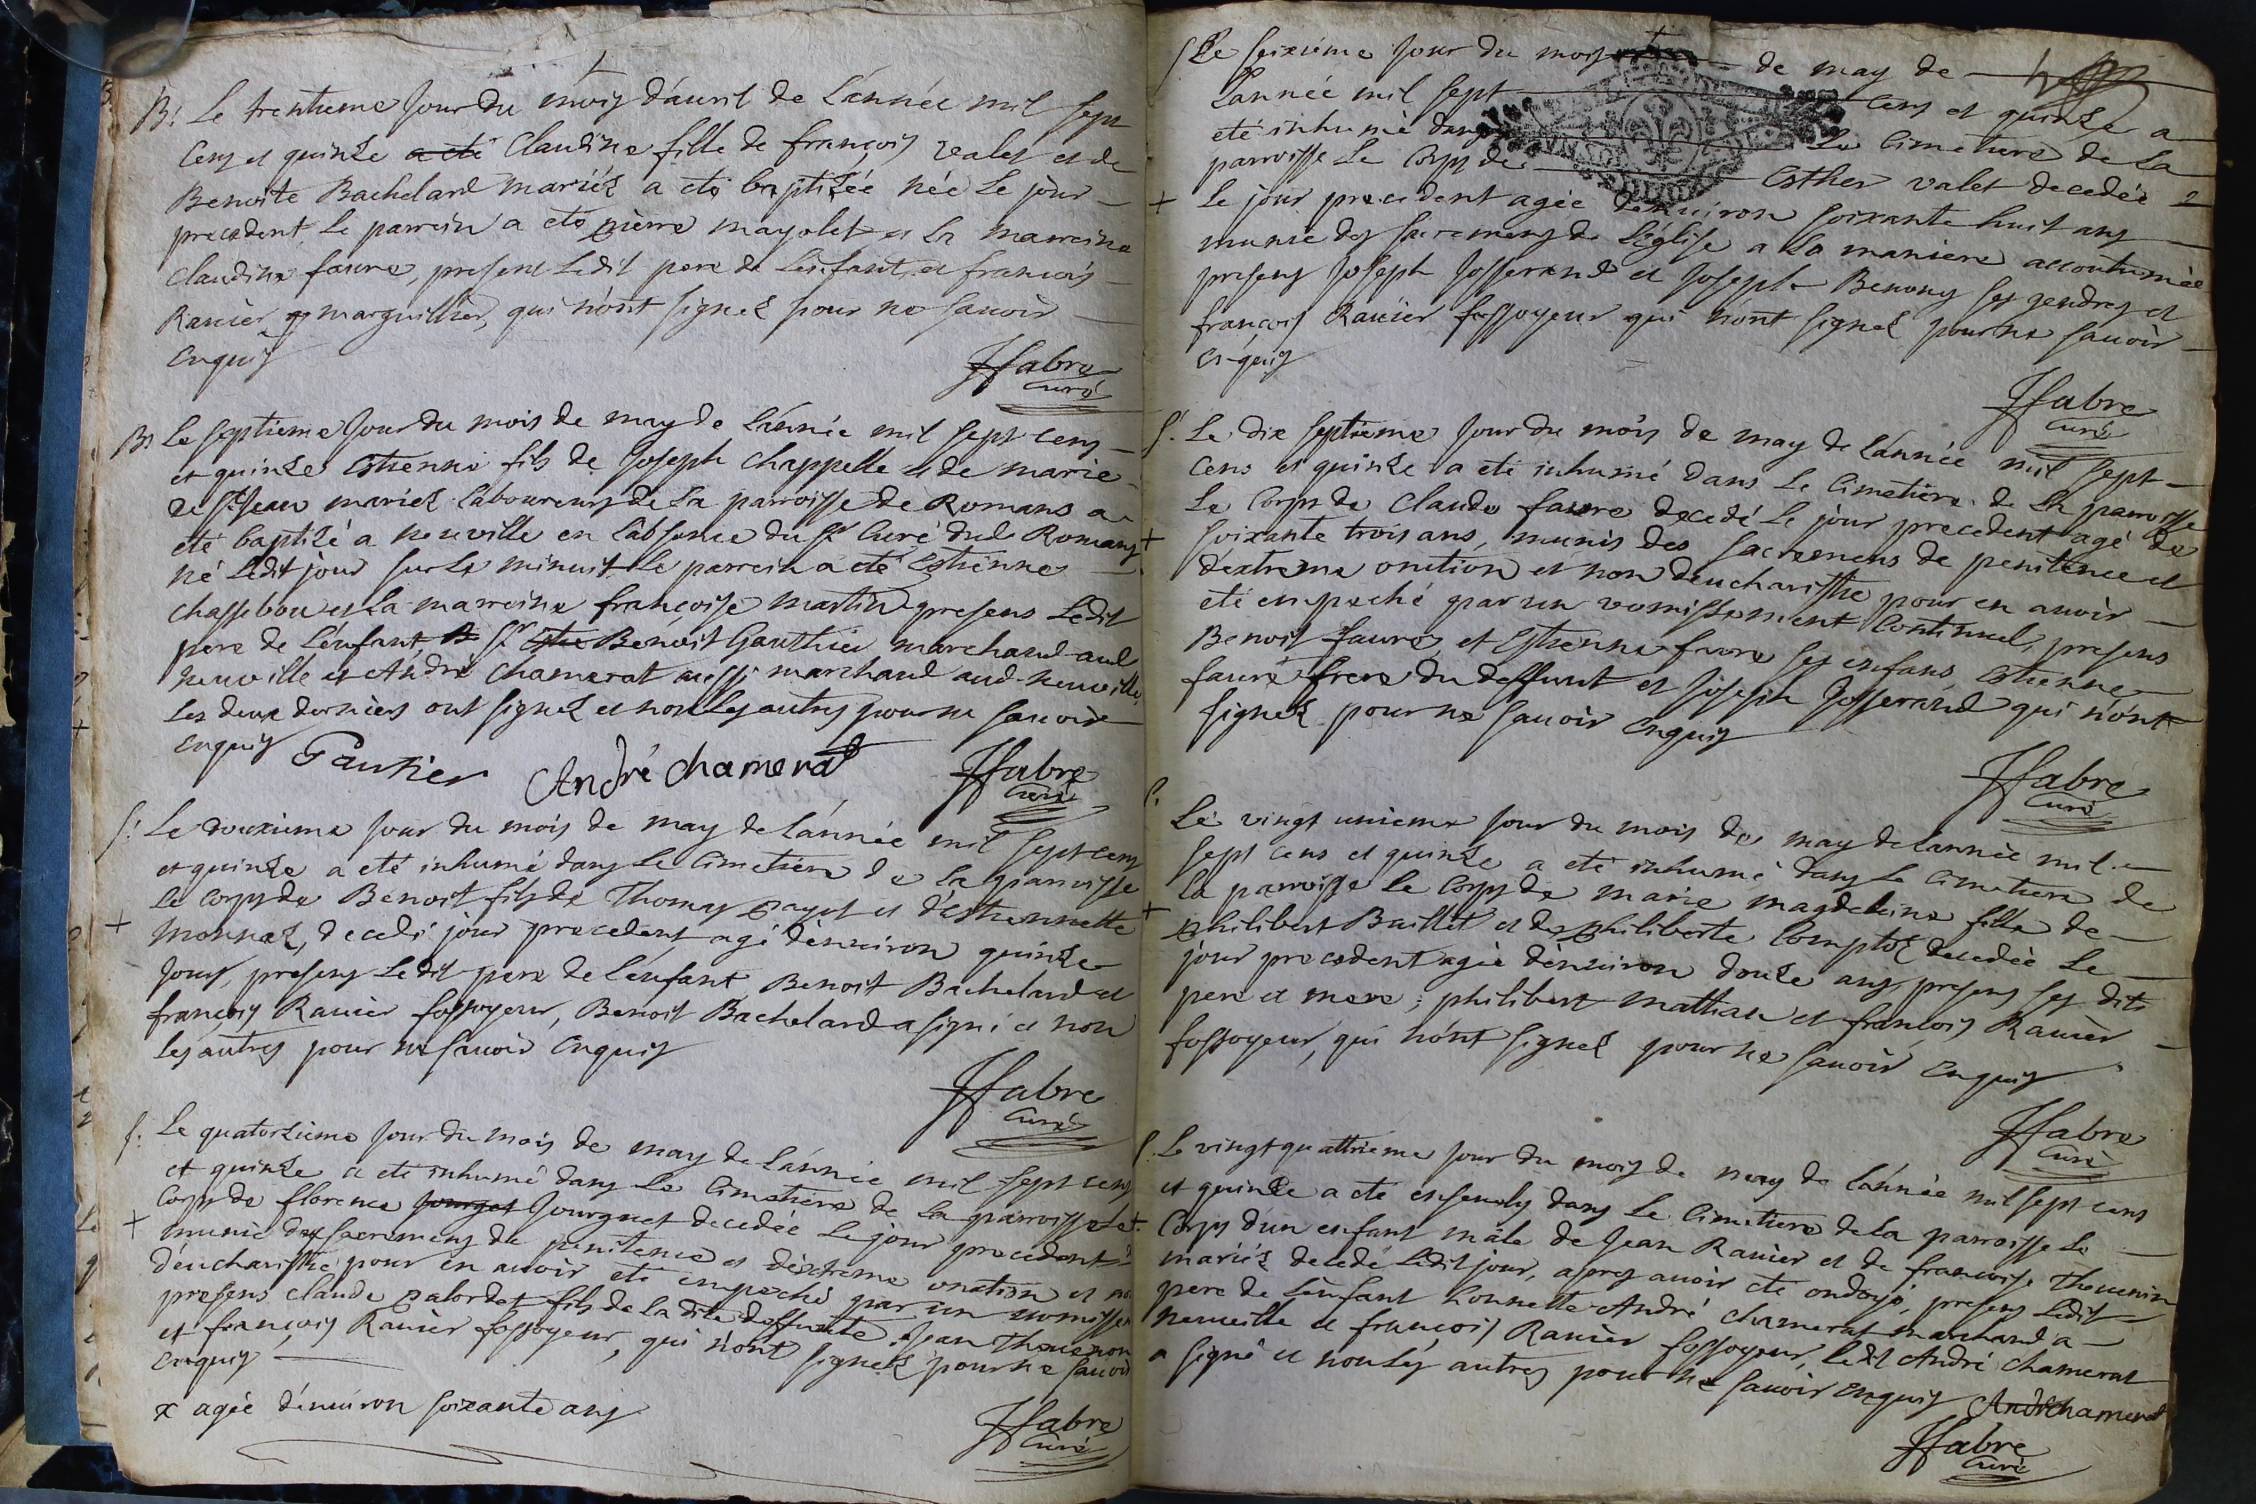 B. Le trentieme Jour du mois d'auril de L'année mil sept
Cens et quinze a eté Claudine fille de françois valet et de
Benoite Bachelard mariéz a eté baptisée née Le jour
precedent, Le parrein a eté pierre mayolet et La marreine
Claudine faure, present Ledit pere de L'enfant, et francois
Rauier marguillier, qui n'ont signez pour ne sauoir
enquis
JFabre
Curé
B. Le septieme Jour du mois de may de L'année mil sept cens
et quinze Estienne fils de Joseph Chappelle et de marie
de St Jean mariez Laboureurs de La parroisse de Romans a
eté baptizé a neuville en L'absence du Sr Curé dud. Romans
né Ledit jour sur Le minuit Le parrein a eté Estienne
Chassebou et La marreine françoise martin presens Ledit
pere de L'enfant, Sr Benoit Gauthier marchand aud.
neuville et André Chamerat aussi marchand aud. neuville,
Les deux derniers ont signez et non Les autres pour ne sauoir
enquis Gautier André chamerat JFabre
Curé
S. Le douxieme Jour du mois de may de L'année mil sept cens
et quinze a eté inhumé dans Le Cimetiere de La parroisse
Le Corps de Benoit fils de Thomas payet et d'Estiennette
Monnez, decedé jour precedent agé d'enuiron quinze
Jours, presens Ledit pere de L'enfant, Benoit Bachelard et
françois Rauier fossoyeur, Benoit Bachelard a signé et non
Les autres pour ne sauoir enquis
JFabre
Curé
S. Le quatorzieme Jour du mois de may de L'année mil sept cens
et quinze a eté inhumé dans Le Cimetiere de La parroisse Le
Corps de florence Jourgnet decedée Le jour precedent x
+ munie des sacremens de penitence et d'extreme onction et non
d'eucharistie pour en auoir eté empeché par un
presens Claude palordet fils de La dite deffunte, Jean Theuenon
et françois Rauier fossoyeur, qui n'ont signez pour ne sauoir
enquis
x agée d'enuiron soixante ans
JFabre
Curé
S. Le seixiéme Jour du mois de may de
L'année mil sept Cens et quinze a
eté inhumé dans Le Cimetiere de La
parroisse Le Corps de Esther valet decedée 2
+ Le jour precedent agée d'enuiron soixante huit ans
munie des sacremens de L'église a La maniere accoutumée
presens Joseph Josserand et Joseph Benony ses gendres et
françois Rauier fossoyeur qui n'ont signez pour ne sauoir
enquis
JFabre
Curé
S. Le dix septieme Jour du mois de may de L'année mil sept
Cens et quinze a eté inhumé dans Le Cimetiere de La parroisse
Le Corps de Claude faure decedé Le jour precedent agé de
+ soixante trois ans, munis des sacremens de penitence et
d'extreme onction et non d'eucharistie pour en auoir
eté empeché par un vomissement Continuel, presens
Benoit faure, et Estienne faure ses enfans, Estienne
faure frere du deffunt et Joseph Josserand qui n'ont
signez pour ne sauoir enquis
JFabre
Curé
S. Le vingt unieme Jour du mois de may de L'année mil
sept cens et quinze a eté inhumé dans Le Cimetiere de
La parroisse Le Corps de marie magdeleine fille de
+ philibert Baillet et de philiberte Comptoz decedée Le
jour precedent agée d'enuiron douze ans, presens ses dits
pere et mere; philibert Mathian et françois Rauier
fossoyeur, qui n'ont signez pour ne sauoir enquis
JFabre
Curé
S. Le vingt quattrieme Jour du mois de may de L'année mil sept cens
et quinze a eté enseuely dans Le Cimetiere de La parroisse Le
+ Corps d'un enfant mâle de Jean Rauier et de francoise Theuenin
mariéz decedé Ledit jour, apres auoir eté ondoyé, presens Ledit
pere de L'enfant honnette André Chamerat marchand a
neuuille et françois Rauier fossoyeur, Ledit André Chamerat
a signé et non Les autres pour ne sauoir enquis André chamerat
JFabre
Curé